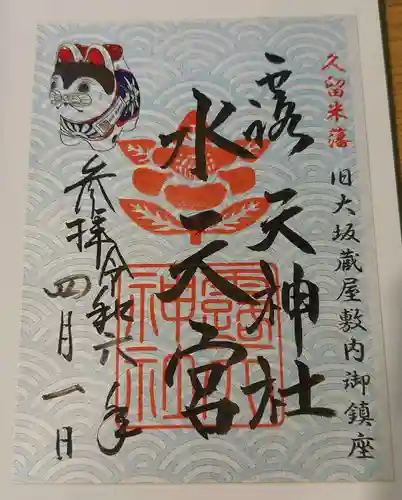 久留米藩 旧大坂蔵屋敷内御鎮座
露天神社
水天宮
参拝 令和六年
四月一日
露天神社